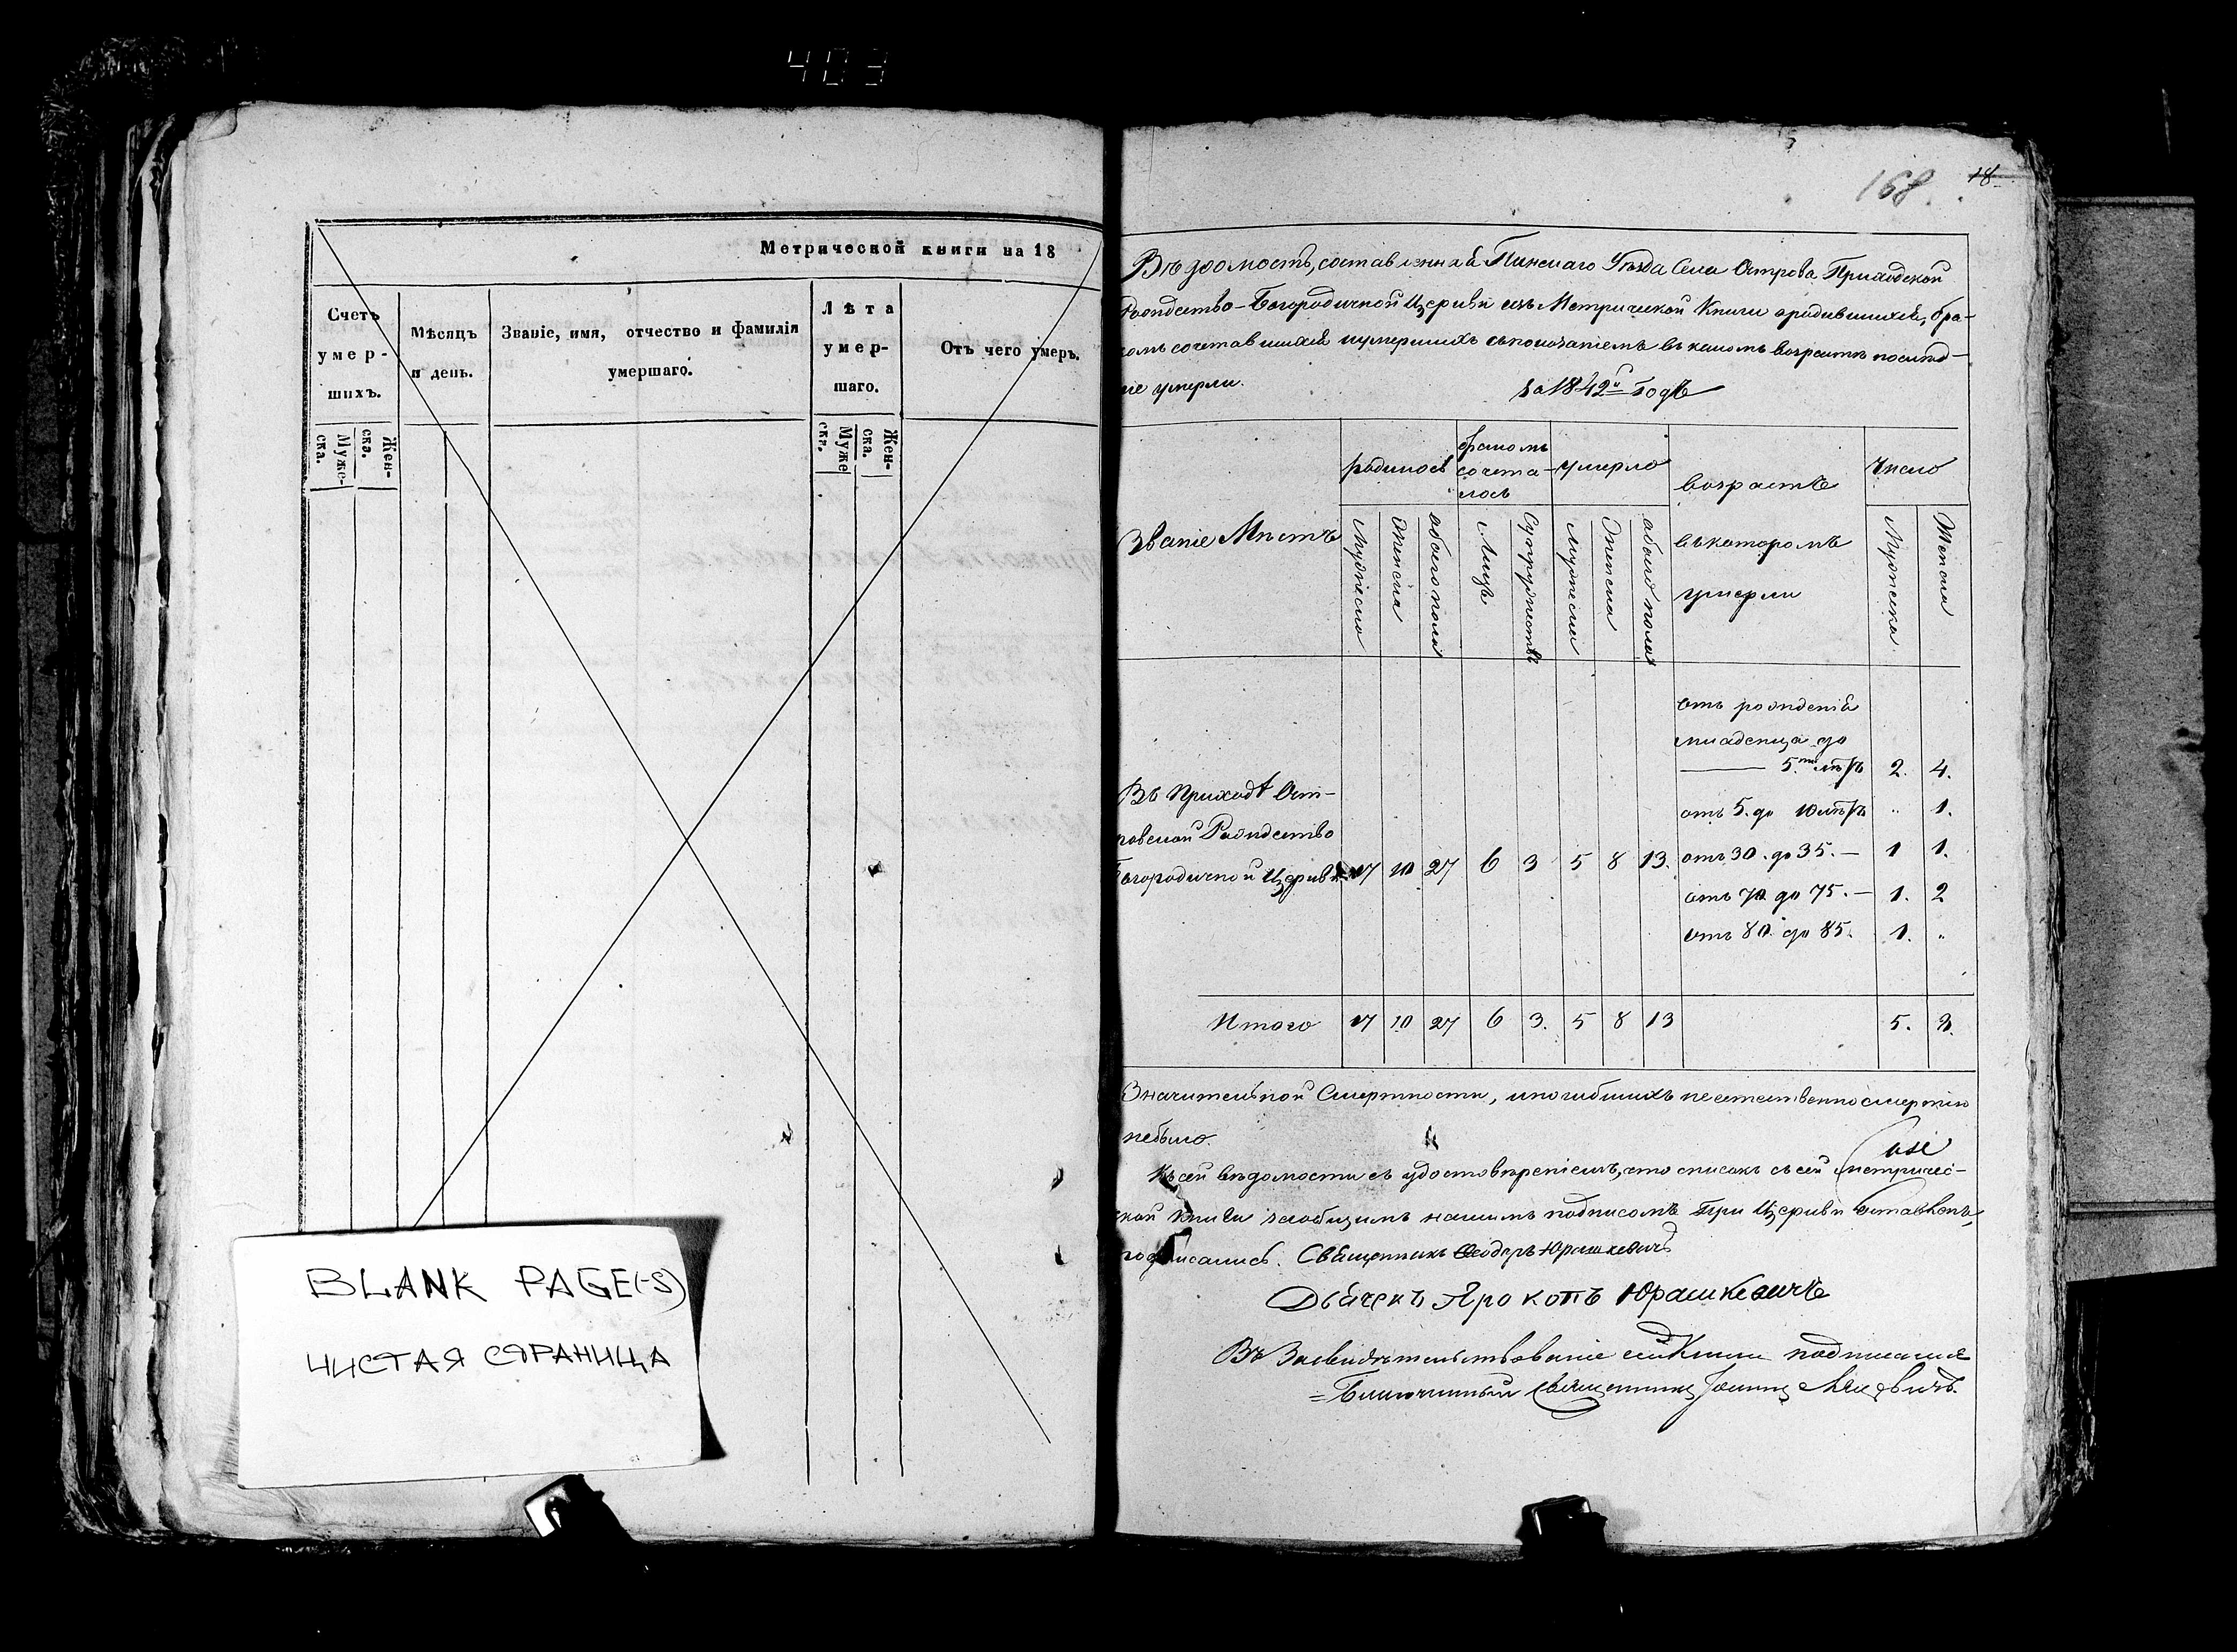 403
Метрической книги на 18
Счетъ умер-шихъ.
Мѣсяцъ и день.
Званіе, имя, отчество и фамилія умершаго.
Лѣта умер-шаго.
Отъ чего умеръ.
Муже-ска.
Жен-ска.
Муже ска.
Жен-ска.
BLANK PAGE(-S)
ЧИСТАЯ СТРАНИЦА
168.
18
Вѣдомость, составленная Пинскаго Уѣзда Села Острова Приходской
Рождество-Богородичной Церкви изъ Метрической Книги о родившихся, бра-
комъ сочетавшихся и умершихъ съ показаніемъ въ какомъ возрастѣ послѣд-
ніе умерли.
за 1842й Годъ
Званіе Мѣстъ
родилось
бракомъ сочета-лось
умерло
возрастъ
въ которомъ
умерли
Число
Мужеска
Женска
обоего пола
Лицъ
Супружествъ
Мужеска
Женска
обоего пола
Мужеска
Женска
отъ рожденія
младенца до
5.ти лѣтъ 2. 4.
отъ 5. до 10 лѣтъ „ 1.
Въ Приходѣ Ост-
ровской Рождество
Богородичной Церкви 17 10 27 6 3 5 8 13.
отъ 30. до 35. — 1 1.
отъ 70 до 75. — 1. 2
отъ 80. до 85. 1. „
Итого 17 10 27 6 3. 5 8 13 5. 8.
Значительной Смертности, и погибшихъ неестественно смертію
небыло.
Къ сей вѣдомости съ удостовѣреніемъ, что списокъ съ сей метричес-
кой книги за общимъ нашимъ подписомъ При Церкви оставленъ,
подписались. Священникъ Ѳеодоръ Юрашкевичъ
Дьячекъ Прокопъ Юрашкевичъ
Въ Засвидѣтельствованіе сей Книги подписался
Благочинный Священникъ Іоаннъ